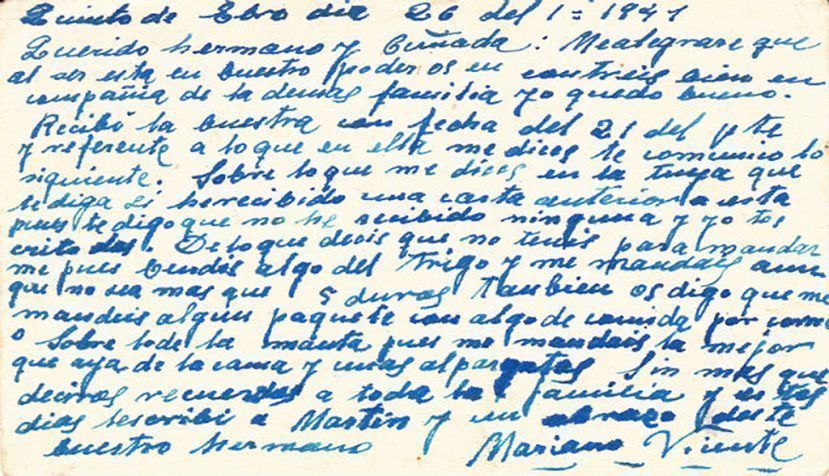 Quinto de Ebro dia 26 del 1 = 1941
Querido hermano y Cuñada: Mealegrare que
al ser esta en buestro poder os en contreis bien en
compañia de la demas familia yo quedo bueno.
Recibi la buestra con fecha del 21 del pte
y referente a loque en ella me dices te comunico lo
siguiente: Sobre loque me dices en la tuya que
te diga si herecibido una carta anterior a esta
pues te digo que no he recibido ninguna y yo tes
crito dos. De loque decis que no teneis para mandar
me pues bendis algo del trigo y me mandais aun
que no sea mas que 5 duros tanbien os digo que me
mandeis algun paquete con algo de comida por
o Sobre lode la manta pues me mandais la mejor
que aya de la cama y unas alpargatas Sin mas que
deciros recuerdos a toda la familia y
dias lescribi a Martin y un abrazo deste
buestro hermano Mariano Vicente